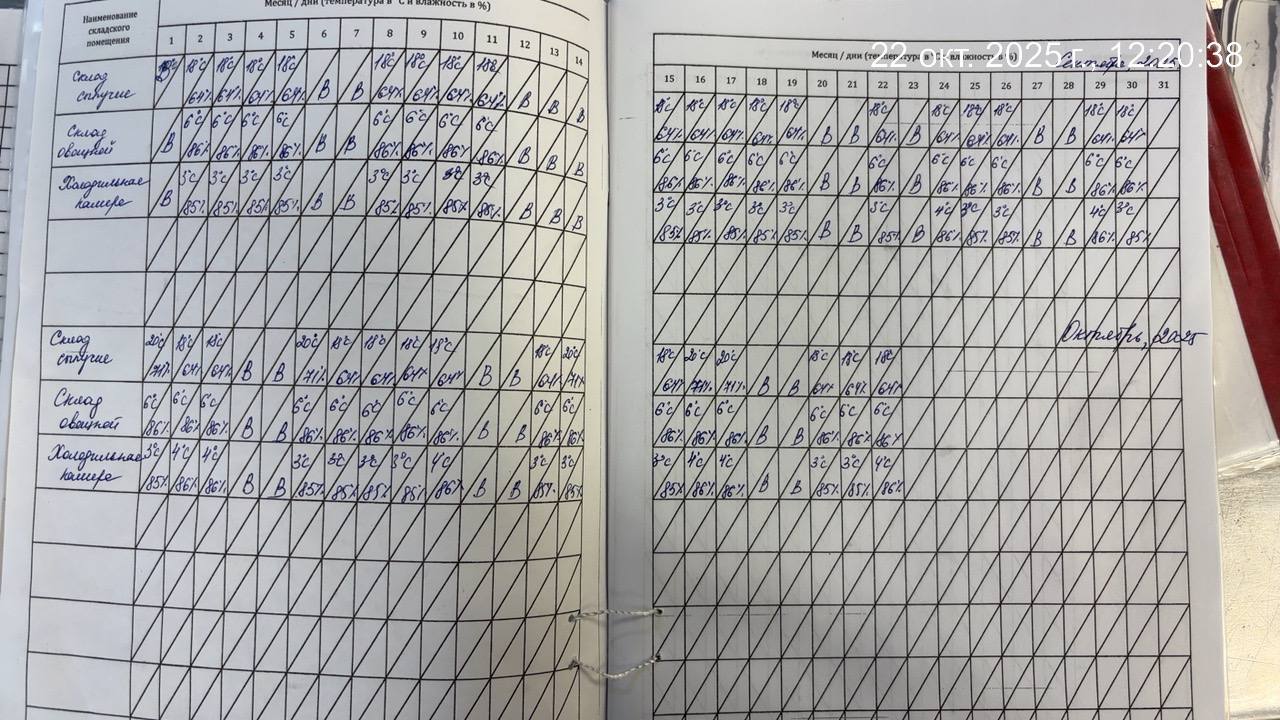 Месяц / дни (температура в °С и влажность в %)
Наименование складского помещения
1 2 3 4 5 6 7 8 9 10 11 12 13 14
Склад сыпучие
18°C 18°C 18°C 18°C 18°C 18°C 18°C 18°C
64% 64% 64% 64% В В 64% 64% 64% 64% В В В
Склад овощной
6°C 6°C 6°C 6°C 6°C 6°C 6°C 6°C
В 86% 86% 86% 86% В В 86% 86% 86% 86% В В В
Холодильная камера
3°C 3°C 3°C 3°C 3°C 3°C 3°C 3°C
В 85% 85% 85% 85% В В 85% 85% 85% 85% В В В
Склад сыпучие
20°C 18°C 18°C 20°C 18°C 18°C 18°C 18°C 18°C 20°C
71% 64% 64% В В 71% 64% 64% 64% 64% В В 64% 71%
Склад овощной
6°C 6°C 6°C 6°C 6°C 6°C 6°C 6°C 6°C 6°C
86% 86% 86% В В 86% 86% 86% 86% 86% В В 86% 86%
Холодильная камера
3°C 4°C 4°C 3°C 3°C 3°C 3°C 4°C 3°C 3°C
85% 86% 86% В В 85% 85% 85% 85% 86% В В 85% 85%
22 окт. 2025 г. 12:20:38
Месяц / дни (температура в °С и влажность в %)
15 16 17 18 19 20 21 22 23 24 25 26 27 28 29 30 31
18°C 18°C 18°C 18°C 18°C 18°C 18°C 18°C 18°C 18°C 18°C
64% 64% 64% 64% 64% В В 64% В 64% 64% 64% В В 64% 64%
6°C 6°C 6°C 6°C 6°C 6°C 6°C 6°C 6°C 6°C 6°C
86% 86% 86% 86% 86% В В 86% В 86% 86% 86% В В 86% 86%
3°C 3°C 3°C 3°C 3°C 3°C 4°C 3°C 3°C 4°C 3°C
85% 85% 85% 85% 85% В В 85% В 86% 85% 85% В В 86% 85%
Октябрь, 2025
18°C 20°C 20°C 18°C 18°C 18°C
64% 71% 71% В В 64% 64% 64%
6°C 6°C 6°C 6°C 6°C 6°C
86% 86% 86% В В 86% 86% 86%
3°C 4°C 4°C 3°C 3°C 4°C
85% 86% 86% В В 85% 85% 86%